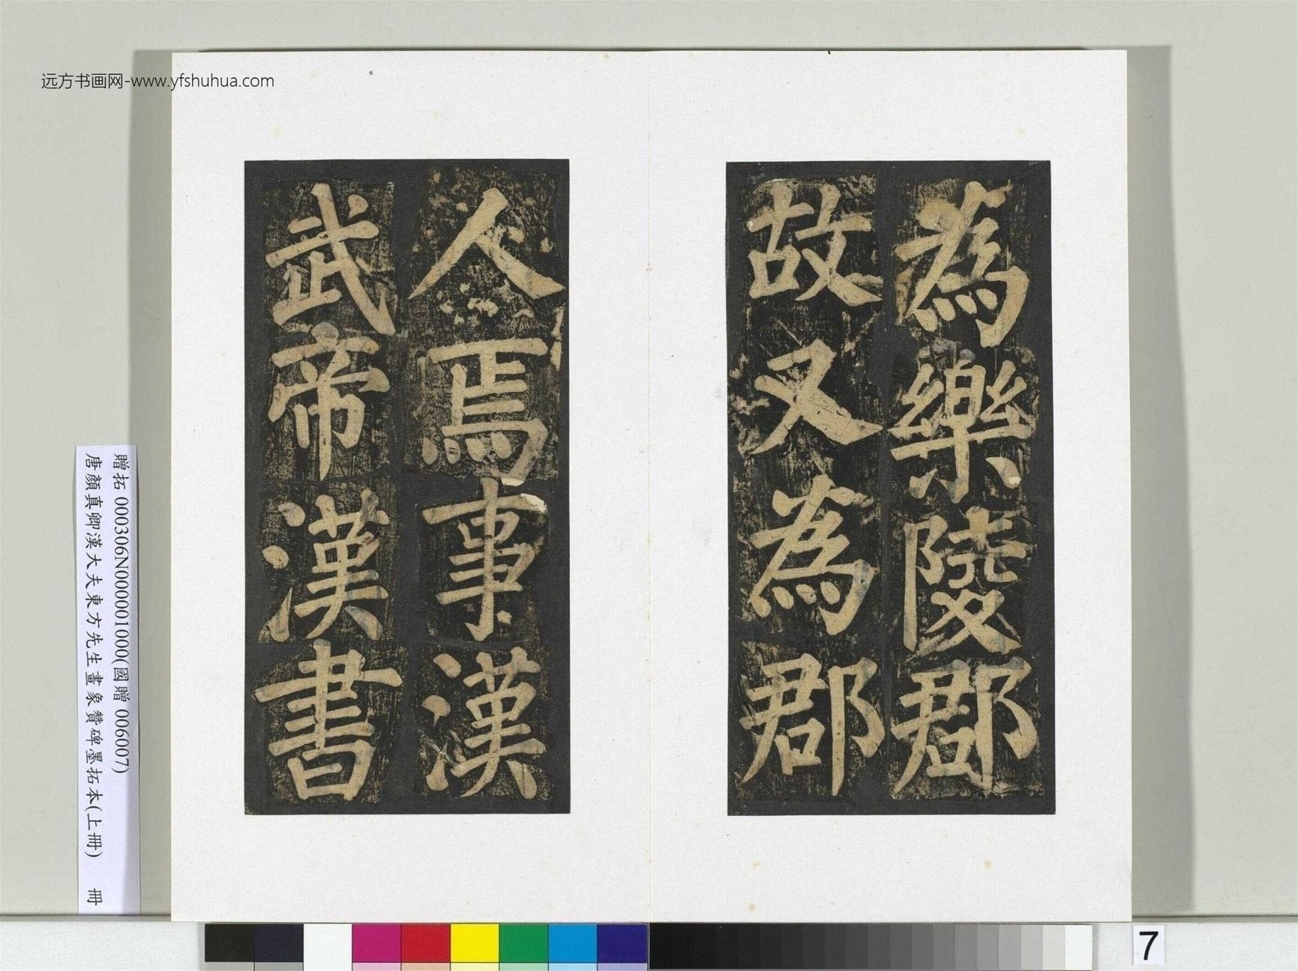 远方书画网-www.yfshuhua.com
為樂陵郡
故又為郡
人焉事漢
武帝漢書
贈拓 000306N000001000(國贈 006007)
唐顏真卿漢大夫東方先生畫象贊碑墨拓本(上冊) 冊
7